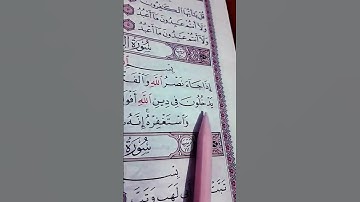 قُلْ يَٰٓأَيُّهَا ٱلْكَٰفِرُونَ
وَلَآ أَنتُمْ عَٰبِدُونَ مَآ أَعْبُدُ
وَلَآ أَنتُمْ عَٰبِدُونَ مَآ أَعْبُدُ
سُورَةُ
بِسْمِ
إِذَا جَآءَ نَصْرُ ٱللَّهِ
يَدْخُلُونَ فِى دِينِ ٱللَّهِ
وَٱسْتَغْفِرْهُ إِنَّهُۥ
سُورَةُ
بِسْمِ
لَهَبٍ وَتَبَّ